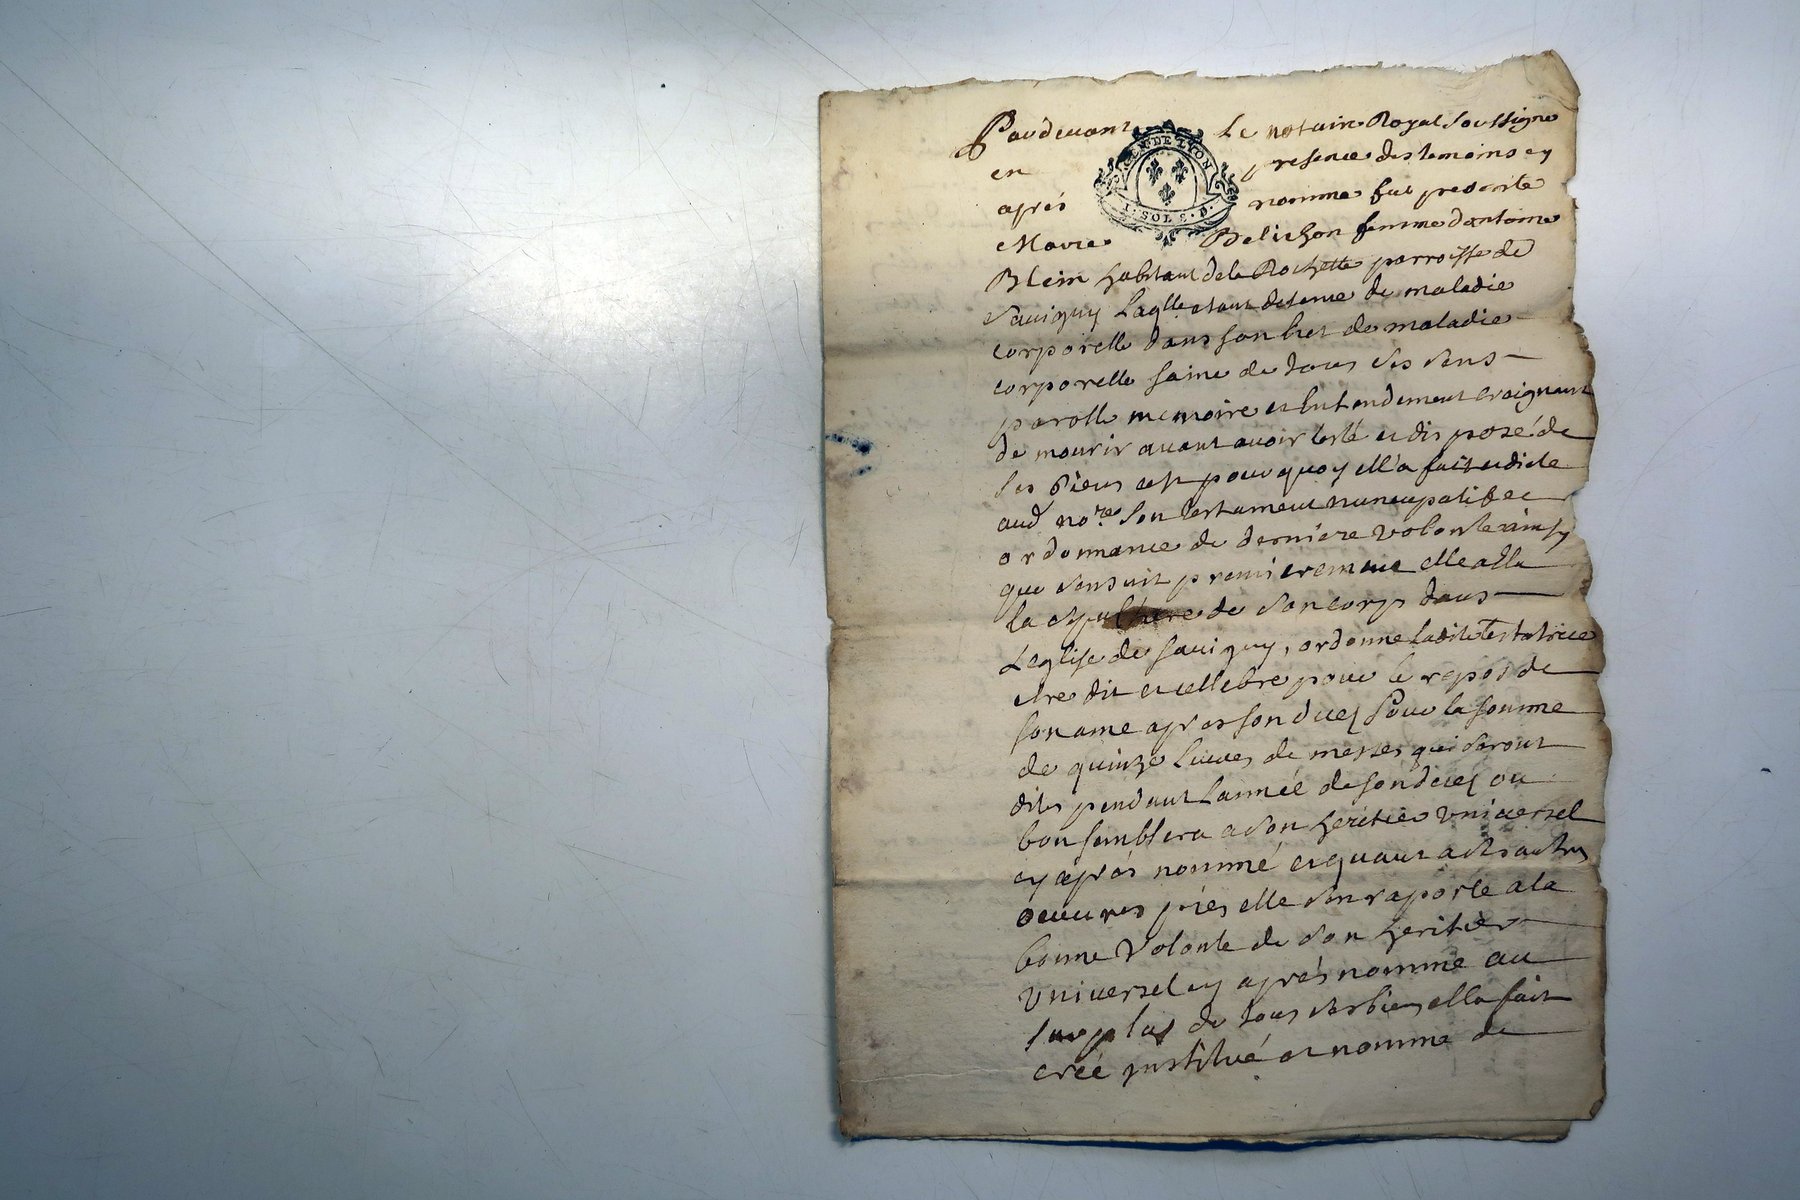 Pardevant Le notaire Royal Soussigne
GEN. DE LYON
I. SOL 5. D.
en presence des temoins cy
apres nomme fut presente
Marie Belichon femme dantoine
Blein habitant dela Rochette parroisse de
Savigny Laqlle etant detenue de maladie
corporelle dans son lict de maladie
corporelle saine de tous ses sens
parolle memoire et Entendement craignant
de mourir avant avoir testé et disposé de
ses Biens cest pourquoy ell'a fait et dicte
aud nore son testament nuncupatif et
ordonnance de derniere volonte ainsy
que sensuit premierement elle
la sepulture de son corps dans
Leglise de Savigny, ordonne ladite testatrice
etre dit et cellebre pour le repos de
son ame apres son deces pour la somme
de quinze livres de messes qui seront
dites pendant Lannéé de son deces ou
bon semblera a son heritier vniversel
cy aprés nommé et quant
oeuvres pies elle sen raporte a la
bonne volonte de son heritier
vniversel cy aprés nomme au
surplus de tous ses biens ella fait
creé institué et nomme de